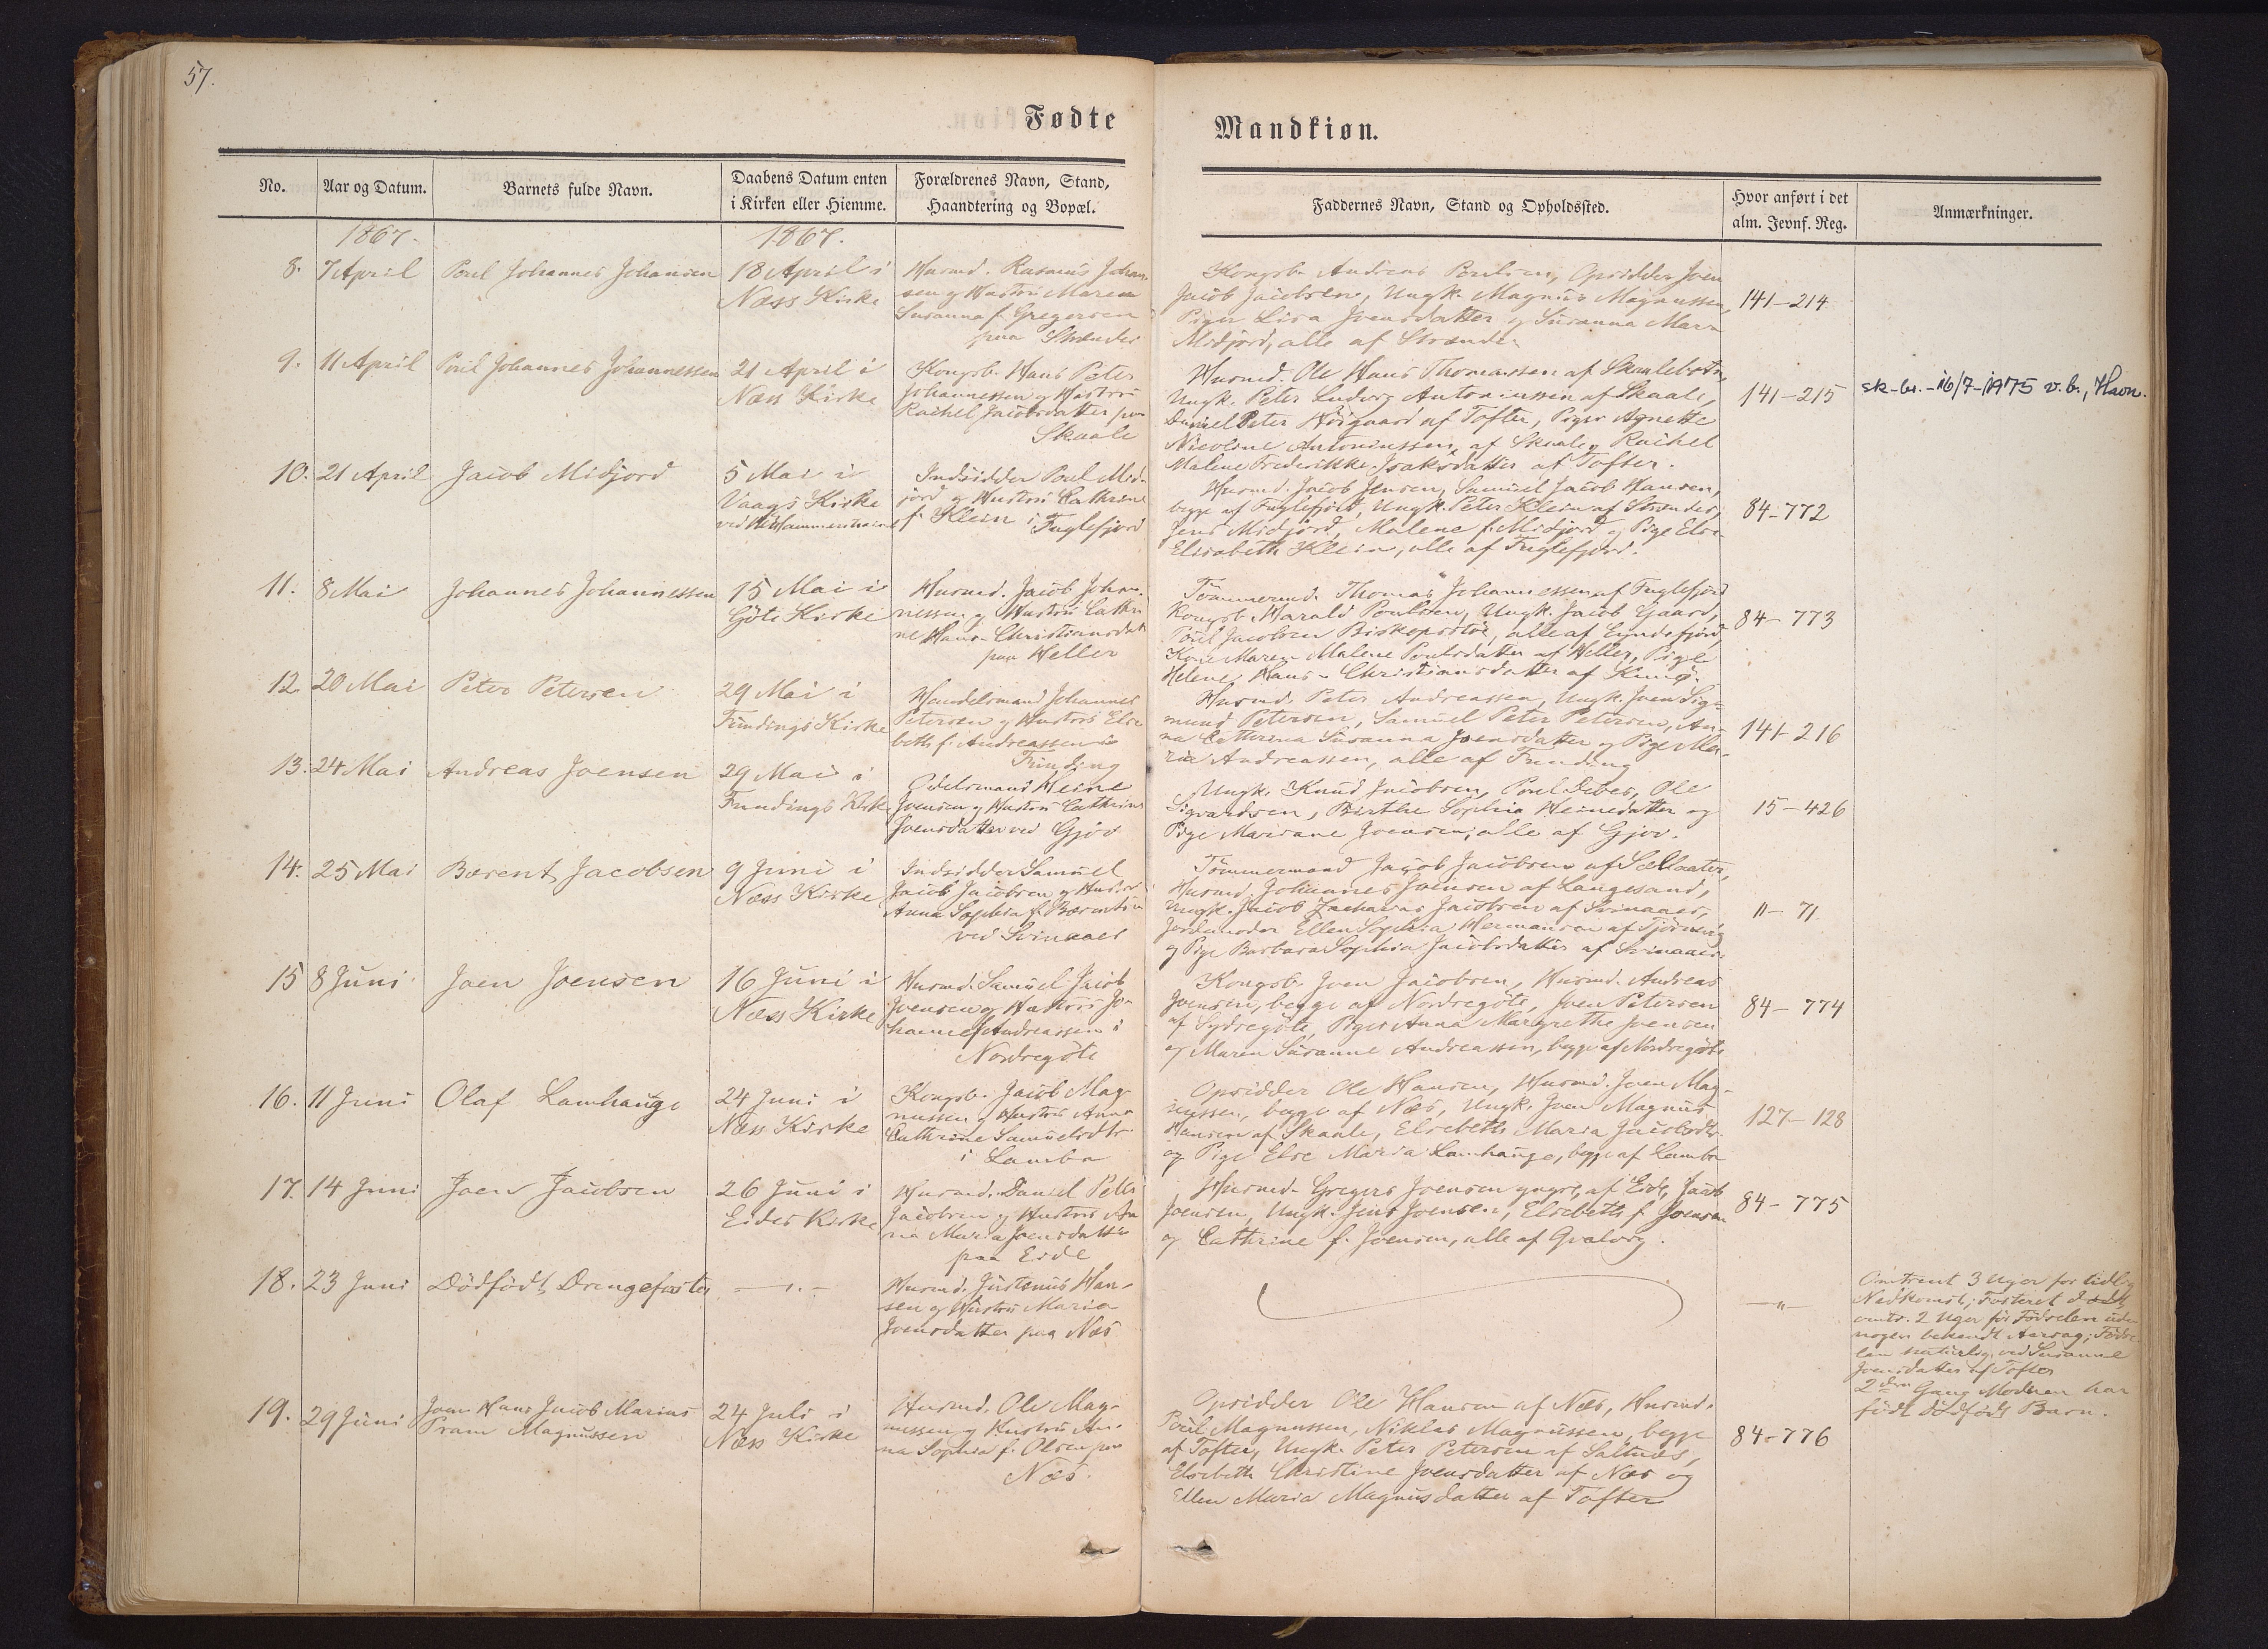 57.
Fødte
Mandkiøn.
No.
Aar og Datum.
Barnets fulde Navn.
Daabens Datum enten
i Kirken eller Hiemme.
Forældrenes Navn, Stand,
Haandtering og Bopæl.
Faddernes Navn, Stand og Opholdssted.
Hvor anført i det
alm. Jevnf. Reg.
Anmærkninger.
1867.
1867.
8.
7 April
Poul Johannes Johansen
18 April i
Næss Kirke
Husmd. Rasmus Johan-
sen og Hustru Maren
Susanna f. Gregersen
paa Strænder
Kongsb. Andreas Poulsen, Opsidder Joen
Jacob Jacobsen, Ungk. Magnus Magnussen,
Piger Lisa Joensdatter og Susanna Maria
Midjord, alle af Strænder
141-214
9.
11 April
Poul Johannes Johannessen
21 April i
Næss Kirke
Kongsb. Hans Peter
Johannessen og Hustru
Rachel Jacobsdatter paa
Skaale
Husmd. Ole Hans Thomassen af Skaalebotne
Ungk. Peter Ludvig Antoniussen af Skaale,
Daniel Peter Höigaard af Tofter, Piger Agnette
Nicoline Antoniussen, af Skaale og Rachel
Malene Frederikke Isaksdatter af Tofter.
141-215
sk-br.-16/7-1975 v.br., Havn.
10.
21 April
Jacob Midjord
5 Mai i
Vaags Kirke
Indsidder Poul Mid-
jord og Hustru Cathrine
f. Klein i Fuglefjord
Husmd. Jacob Jensen, Samuel Jacob Hansen,
begge af Fuglefjord, Ungk. Peter Klein af Strænder,
Jens Midjord, Malene f. Midjord og Pige Else
Elisabeth Klein, alle af Fuglefjord.
84-772
11.
8 Mai
Johannes Johannessen
15 Mai i
Göte Kirke
Husmd. Jacob Johan-
nessen og Hustru Cathri-
ne Hans-Christiansdatt
paa Heller
Tömmermd. Thomas Johannessen af Fuglefjord
Kongsb. Harald Poulsen, Ungk. Jacob Gaard,
Poul Jacobsen Biskopstöe, alle af Cyndefjord,
Kone Maren Malene Poulsdatter af Heller, Pige
Helene Hans-Christiansdatter af Kunø.
84-773
12
20 Mai
Peter Petersen
29 Mai i
Fundings Kirke
Handelsmand Johannes
Petersen og Hustru Else
beth f. Andreassen i
Funding
Husmd. Peter Andreassen, Ungk. Joen Sig-
mund Petersen, Samuel Peter Petersen, An-
na Cathrina Susanna Joensdatter og Pige Ma-
ria Andreassen, alle af Funding
141-216
13.
24 Mai
Andreas Joensen
29 Mai i
Fundings Kirke
Odelsmand Heine
Joensen og Hustru Cathrine
Joensdatter ved Gjov
Ungk. Knud Jacobsen, Poul Debes, Ole
Sigvardsen, Birthe Sophia Heinesdatter og
Pige Mariane Joensen, alle af Gjov.
15-426
14.
25 Mai
Bærent Jacobsen
9 Juni i
Næss Kirke
Indsidder Samuel
Jacob Jacobsen og Hustru
Anna Sophia f. Bærentsen
ved Svinaaer
Tömmermand Jacob Jacobsen af Sællater,
Husmd. Johannes Joensen af Langesand,
Ungk. Jacob Zacharias Jacobsen af Svinaaer,
Jordemoder Ellen Sophia Hermansen af Tjörnevig
og Pige Barbara Sophia Jacobsdatter af Svinaaer.
11-71
15
8 Juni
Joen Joensen
16 Juni i
Næss Kirke
Husmd. Samuel Jacob
Joensen og Hustru Jo-
hanne f. Andreassen i
Nordregöte
Kongsb. Joen Jacobsen, Husmd. Andreas
Joensen, begge af Nordregöte, Joen Petersen
af Sydregöte, Piger Anna Margrethe Joensen
og Maren Susanne Andreassen, begge af Nordregöte
84-774
16.
11 Juni
Olaf Lamhauge
24 Juni i
Næss Kirke
Kongsb. Jacob Mag-
nussen og Hustru Anna
Cathrine Samuelsdtr.
i Lamba
Opsidder Ole Hansen, Husmd. Joen Mag-
nussen, begge af Næs, Ungk. Joen Magnus
Hansen af Skaale, Elsebeth Maria Jacobsdtr.
og Pige Else Maria Lamhauge, begge af Lamba
127-128
17.
14 Juni
Joen Jacobsen
26 Juni i
Eides Kirke
Husmd. Daniel Peter
Jacobsen og Hustru An
na Maria Joensdatter
paa Eide
Husmd. Gregers Joensen yngre, af Eide, Jacob
Joensen, Ungk. Jens Joensen, Elsebeth f. Joensen
og Cathrine f. Joensen, alle af Gralvig.
84-775
18.
23 Juni
Dödfödt Drengefoster
-"-
Husmd. Justenus Han-
sen og Hustru Maria
Joensdatter paa Næs
-"-
Omtrent 3 Uger for tidlig
Nedkomst; Fosteret död
omtr. 2 Uger för Födselen uden
nogen bekendt Aarsag; Födse-
len naturlig, ved Susanne
Joensdatter af Tofter
2den Gang Moderen har
födt dödfödt Barn.
19.
29 Juni
Joen Hans Jacob Marius
Pram Magnussen
24 Juli i
Næss Kirke
Husmd. Ole Mag-
nussen og Hustru An-
na Sophia f. Olsen paa
Næs.
Opsidder Ole Hansen af Næs, Husmd.
Poul Magnussen, Niklas Magnussen, begge
af Tofter, Ungk. Peter Petersen af Saltnæs,
Elsebeth Christine Joensdatter af Næs og
Ellen Maria Magnusdatter af Tofter
84-776